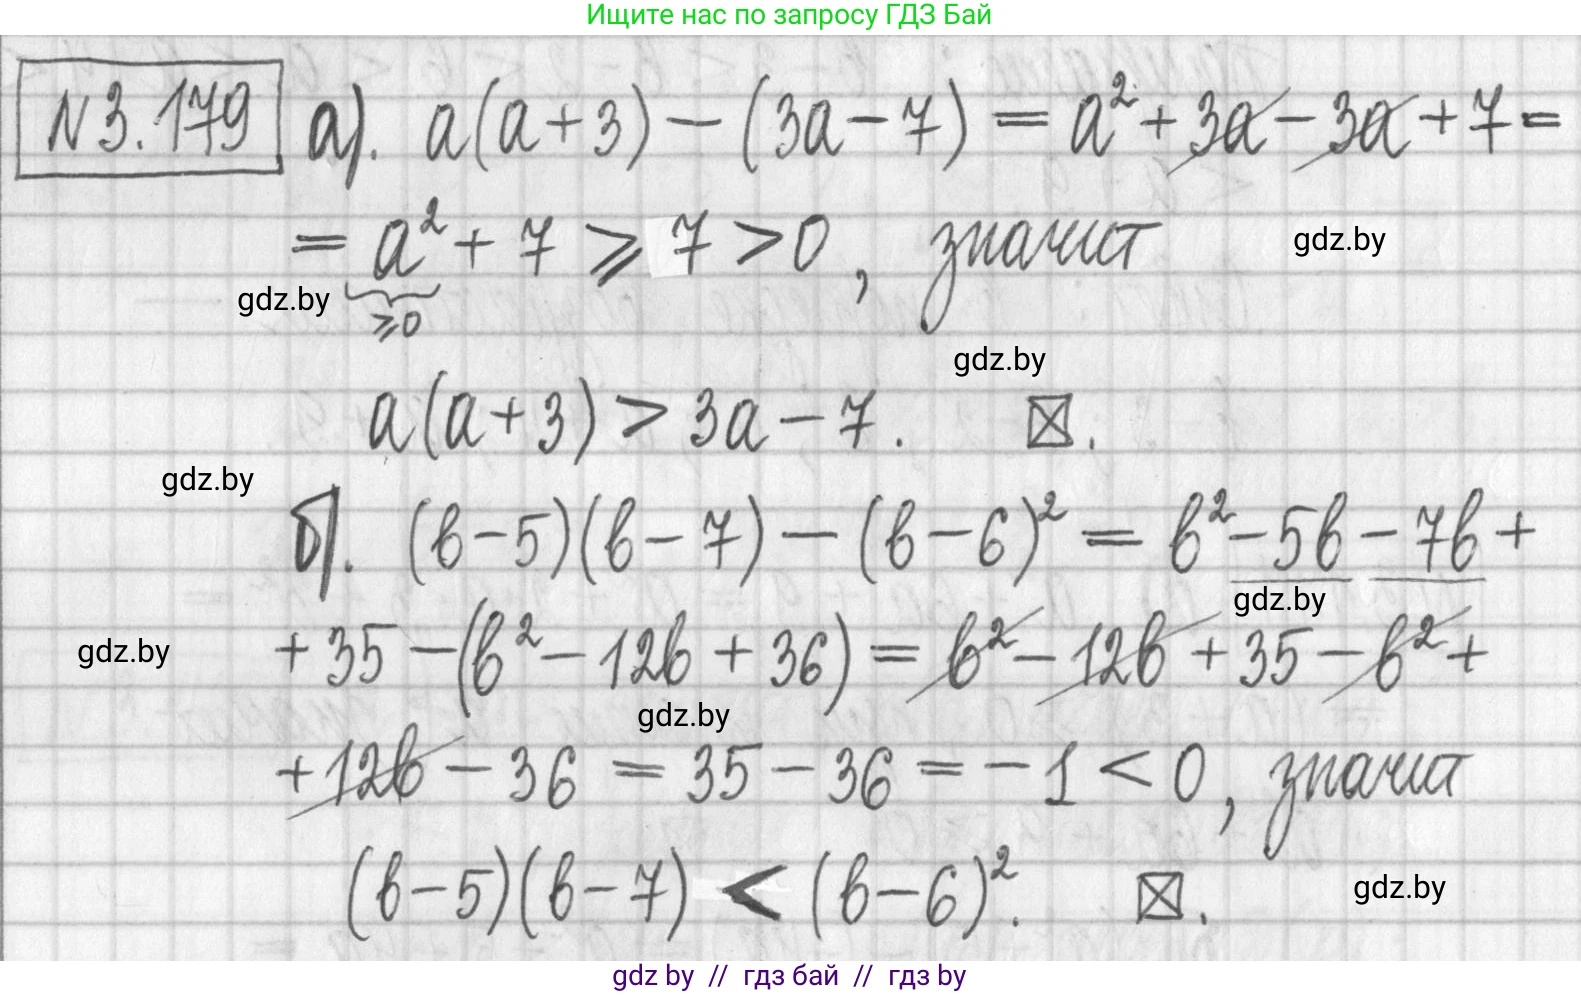 Ищите нас по запросу ГДЗ Бай
N3.179 а). a(a+3) − (3a−7) = a² + 3a − 3a + 7 =
= a² + 7 ⩾ 7 > 0, значит
gdz.by
gdz.by
⩾0
gdz.by
a(a+3) > 3a − 7. ⊠.
gdz.by
б). (b−5)(b−7) − (b−6)² = b² − 5b − 7b +
gdz.by
+ 35 − (b² − 12b + 36) = b² − 12b + 35 − b² +
gdz.by
gdz.by
+ 12b − 36 = 35 − 36 = −1 < 0, значит
(b−5)(b−7) < (b−6)². ⊠.
gdz.by
gdz by // гдз бай // гдз by